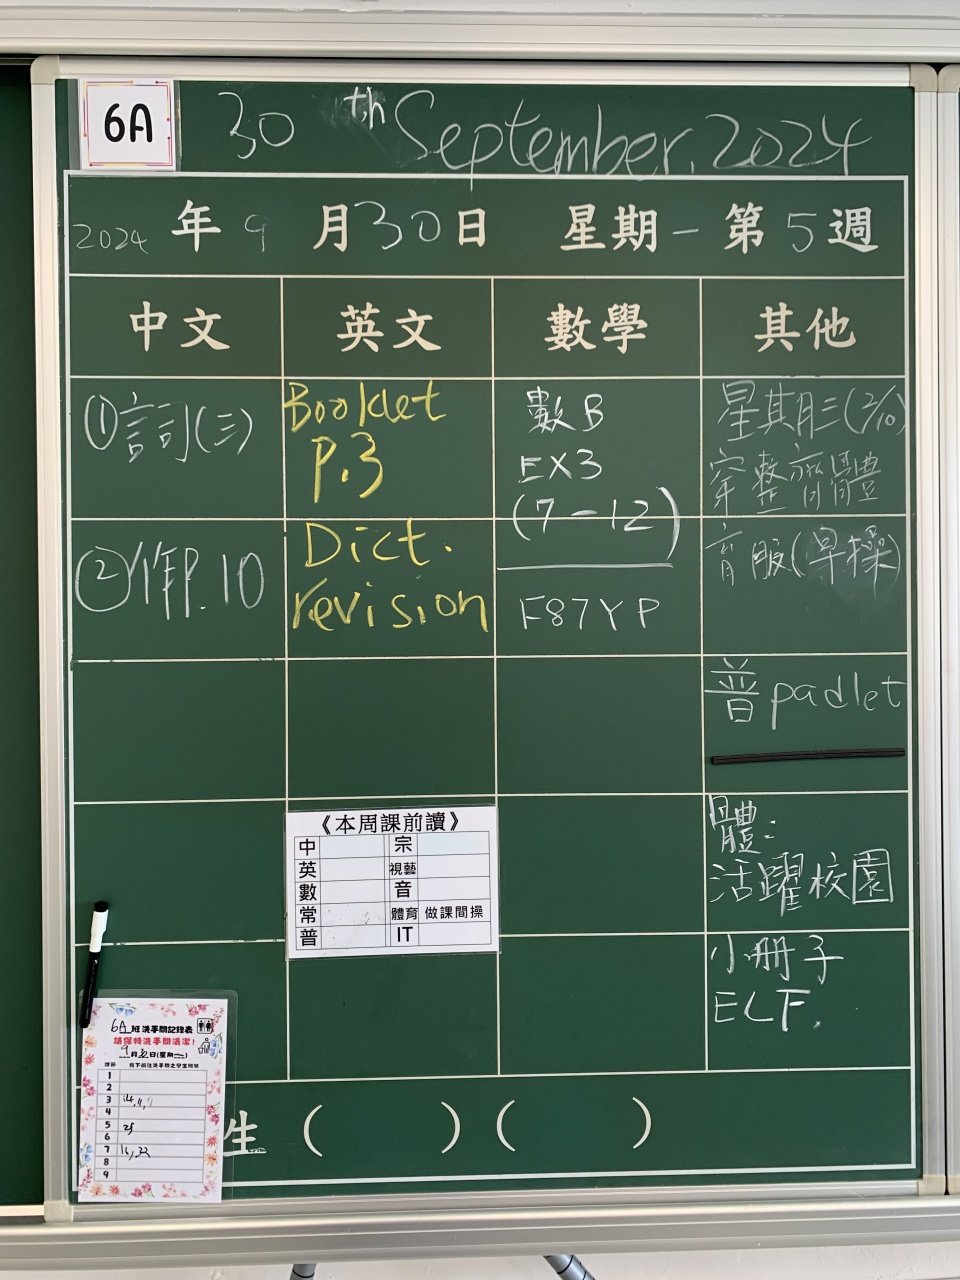 6A
30th September, 2024
2024年9月30日 星期一 第5週
中文 英文 數學 其他
①詞(三)
②作P.10
Booklet
P.3
Dict.
revision
數B
EX3
(7-12)
F87YP
星期三(2/10)
穿整齊體
育服(早操)
普padlet
體:
活躍校園
小冊子
ELF.
《本周課前讀》
中 宗
英 視藝
數 音
常 體育 做課間操
普 IT
6A班洗手間記錄表
請保持洗手間清潔!
9月30日(星期一)
1
2
3 14,11,9
4
5 25
6
7
8
9
生( )( )